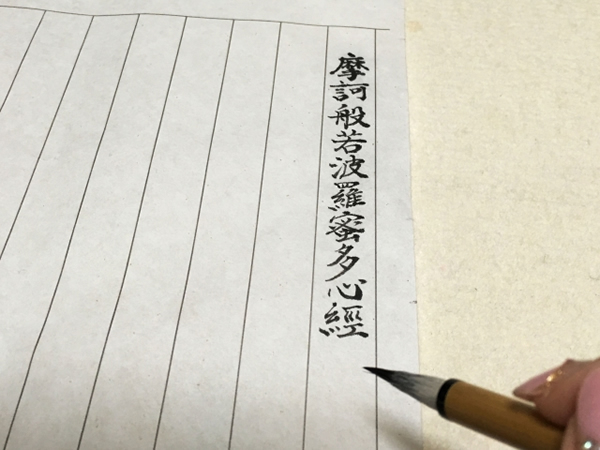 摩訶般若波羅蜜多心經